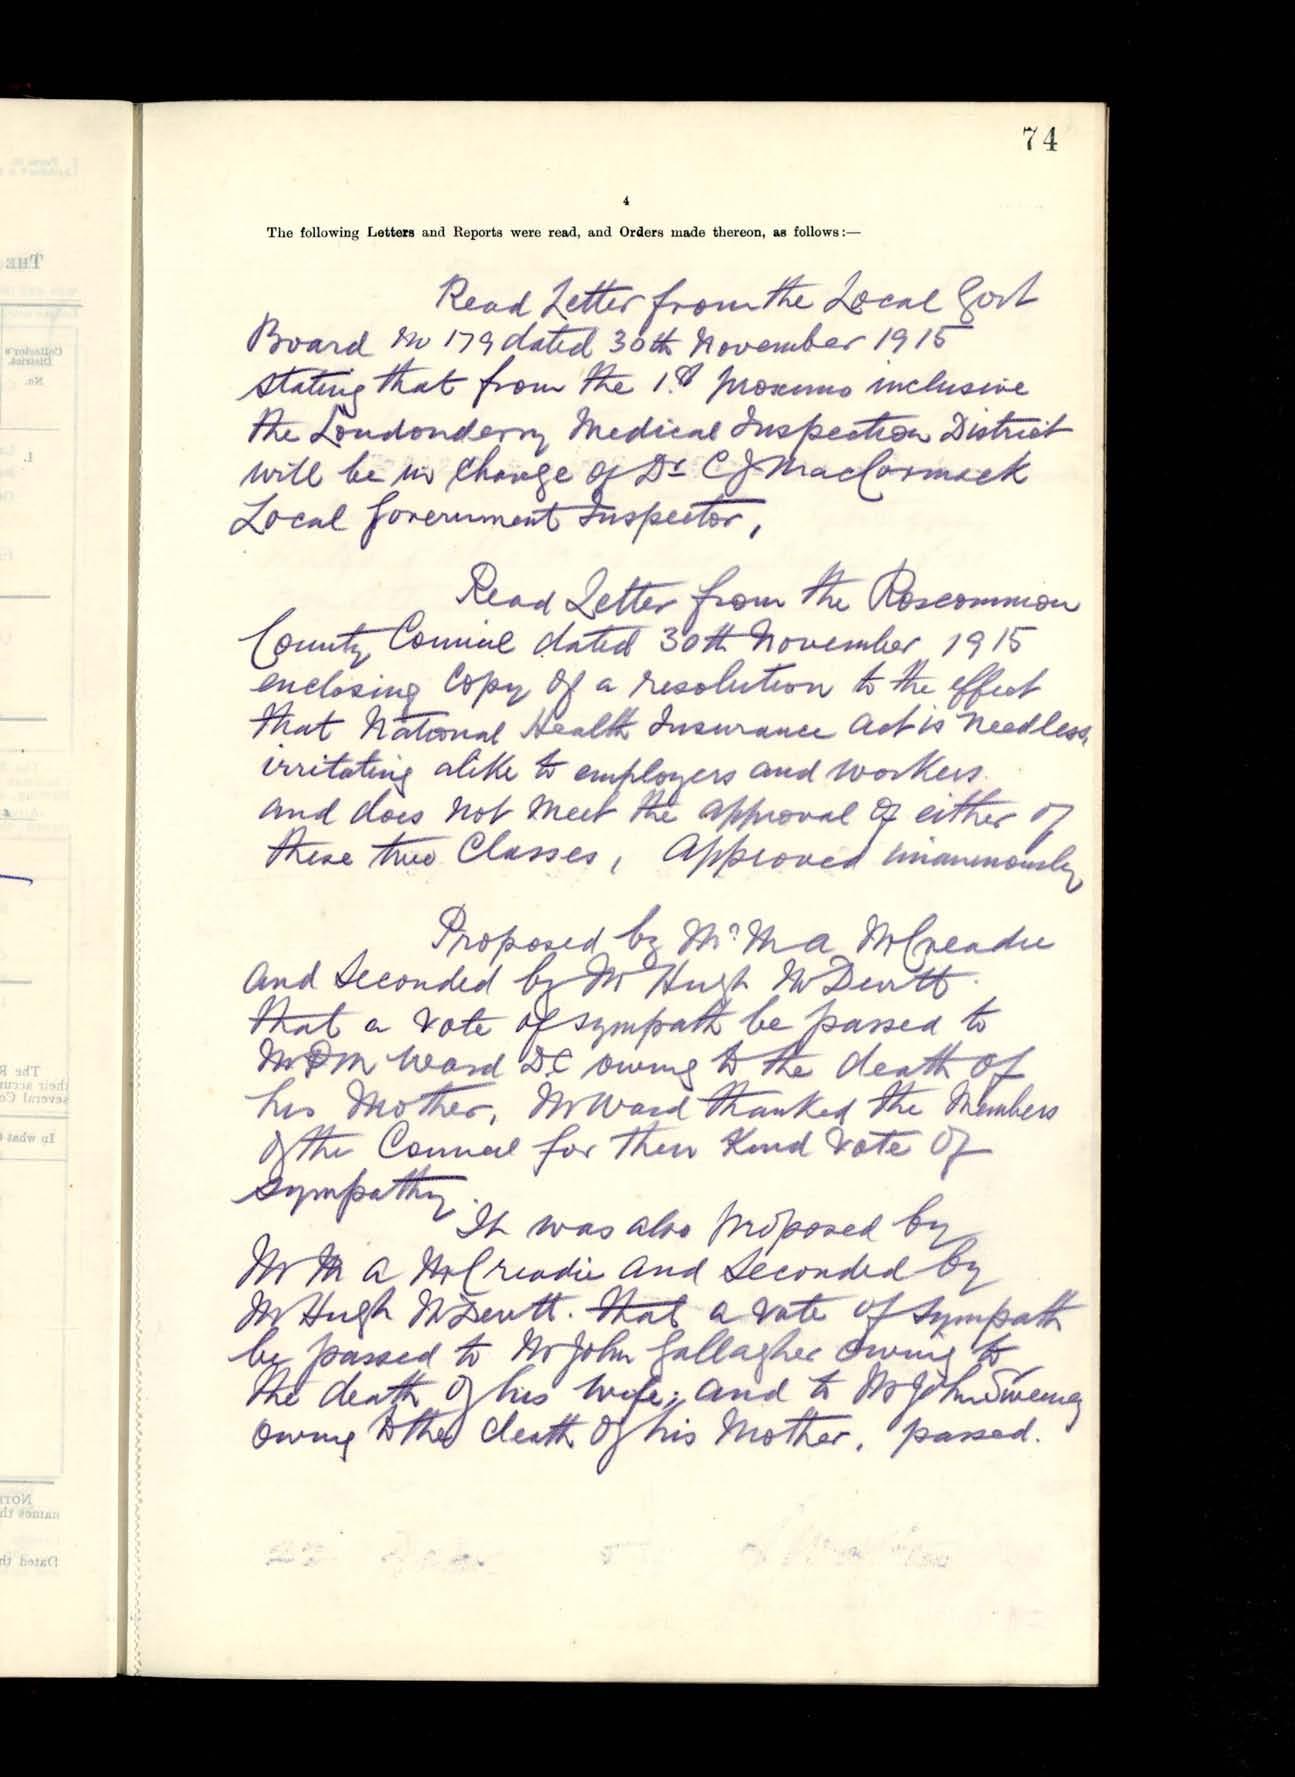 74
4
The following Letters and Reports were read, and Orders made thereon, as follows:—
Read Letter from the Local Govt
Board No 179 dated 30th November 1915
stating that from the 1st proximo inclusive
the Londonderry Medical Inspection District
will be in Charge of Dr C J MacCormack
Local Government Inspector,
Read Letter from the Roscommon
County Council dated 30th November 1915
enclosing Copy of a resolution to the effect
that National Health Insurance Act is needless,
irritating alike to employers and workers
and does not meet the approval of either of
these two Classes, Approved unanimously
Proposed by Mr M A McCreadie
and Seconded by Mr Hugh McDevitt.
that a vote of sympath be passed to
Mr P M Ward D.C owing to the death of
his Mother, Mr Ward thanked the Members
of the Council for their Kind Vote of
sympathy.
It was also proposed by
Mr M A McCreadie and Seconded by
Mr Hugh McDevitt. that a vote of Sympath
be passed to Mr John Gallagher owing to
the death of his wife; and to Mr John Sweeney
owing to the death of his Mother, passed.